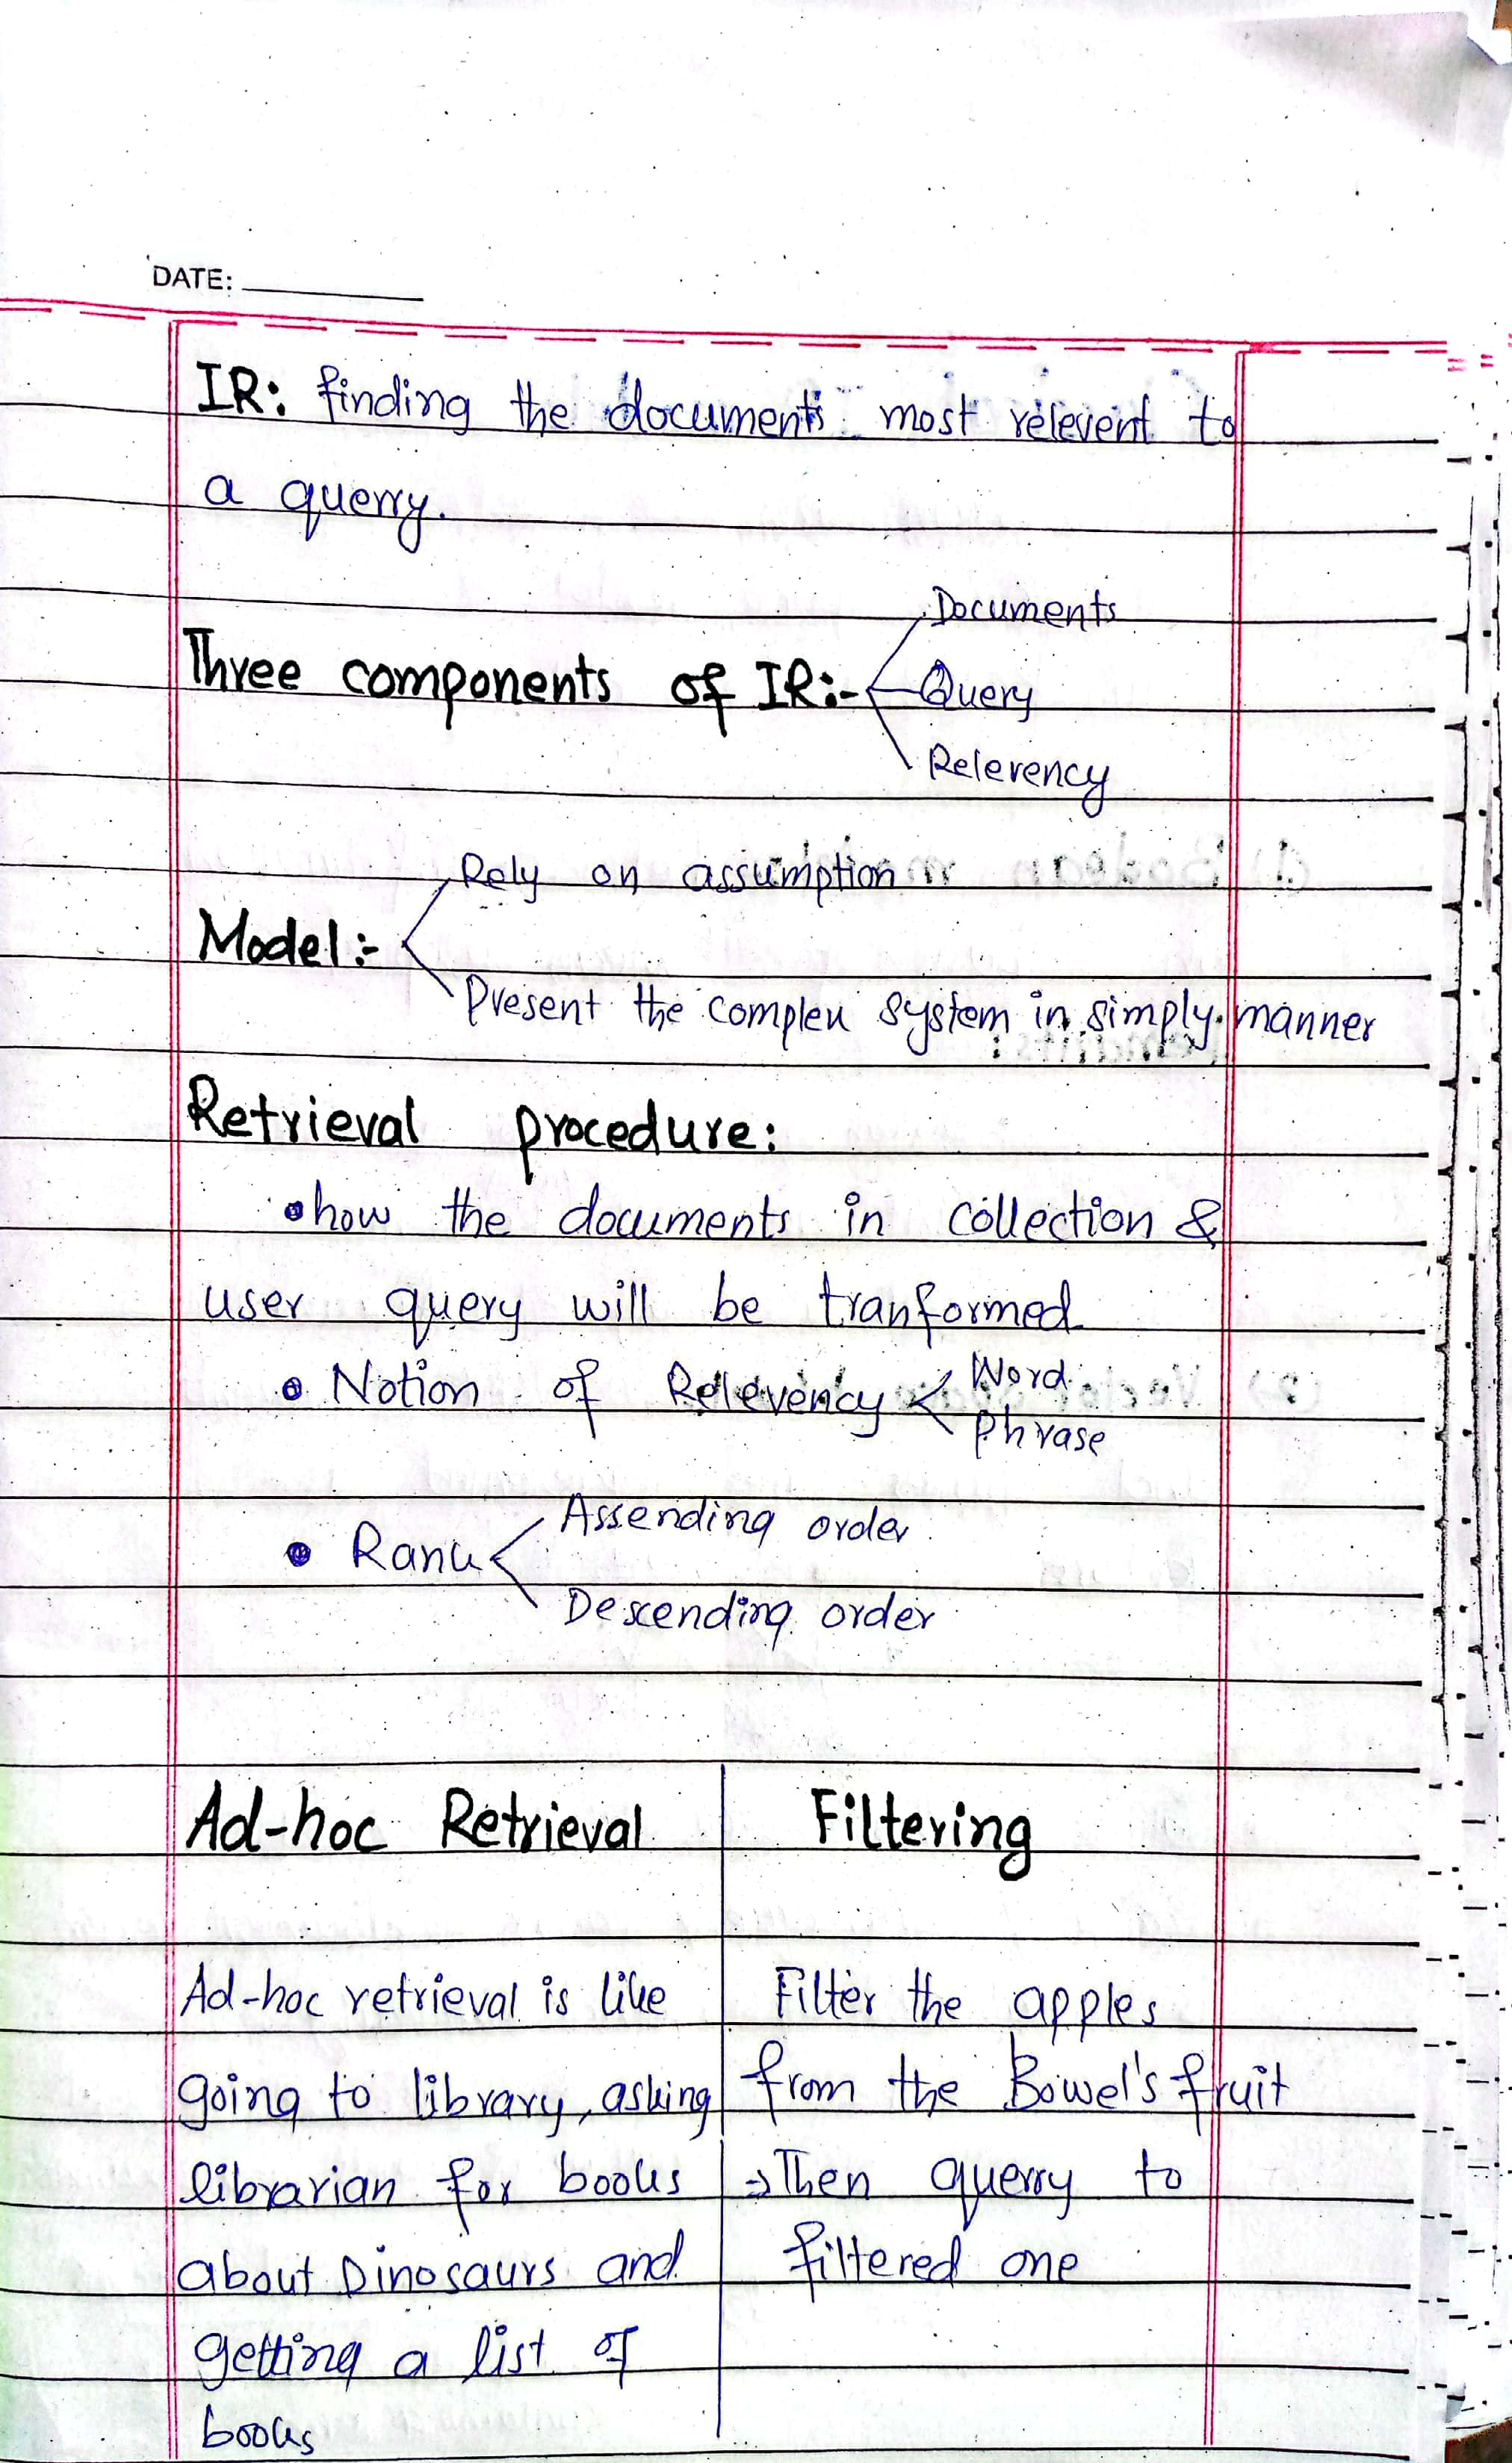 DATE:
IR: finding the documents most relevent to
a querry.
Documents
Three components of IR:- Query
Relevency
Rely on assumption
Model:-
Present the complex system in simply manner
Retrieval procedure:
• how the documents in collection &
user query will be tranformed
• Notion of Relevency < Word
Phrase
Assending order
• Rank <
Descending order
Ad-hoc Retrieval
Ad-hoc retrieval is like
going to library, asking
librarian for books
about Dinosaurs and
getting a list of
books
Filtering
Filter the apples
from the Bowel's fruit
→ Then querry to
filtered one